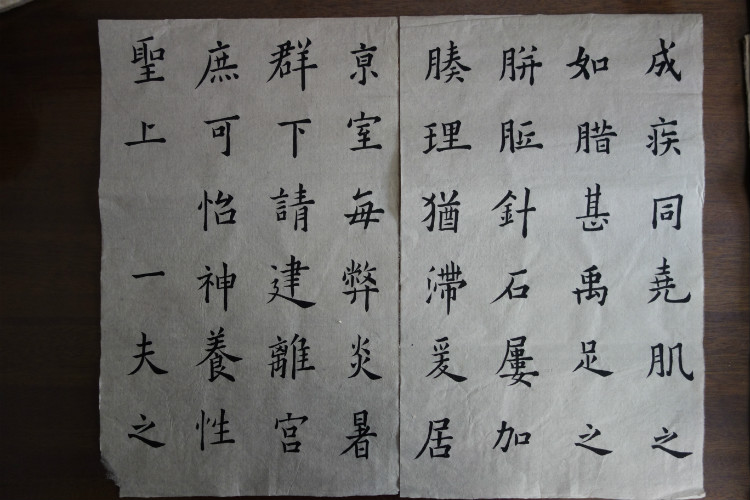 成疾同堯肌之
如腊甚禹足之
胼胝針石屢加
腠理猶滯爰居
亰室每弊炎暑
群下請建離宮
庶可怡神養性
聖上 一夫之